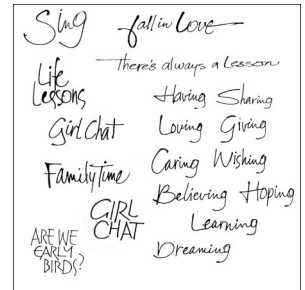 Sing
fall in Love
There's always a Lesson
Life
Lessons
Having Sharing
Girl Chat
Loving Giving
Family Time
Caring Wishing
Believing Hoping
GIRL
CHAT
Learning
ARE WE
EARLY
BIRDS?
Dreaming